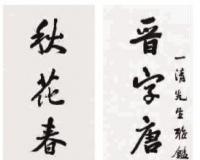 一清先生雅鑑
晋字唐
秋花春